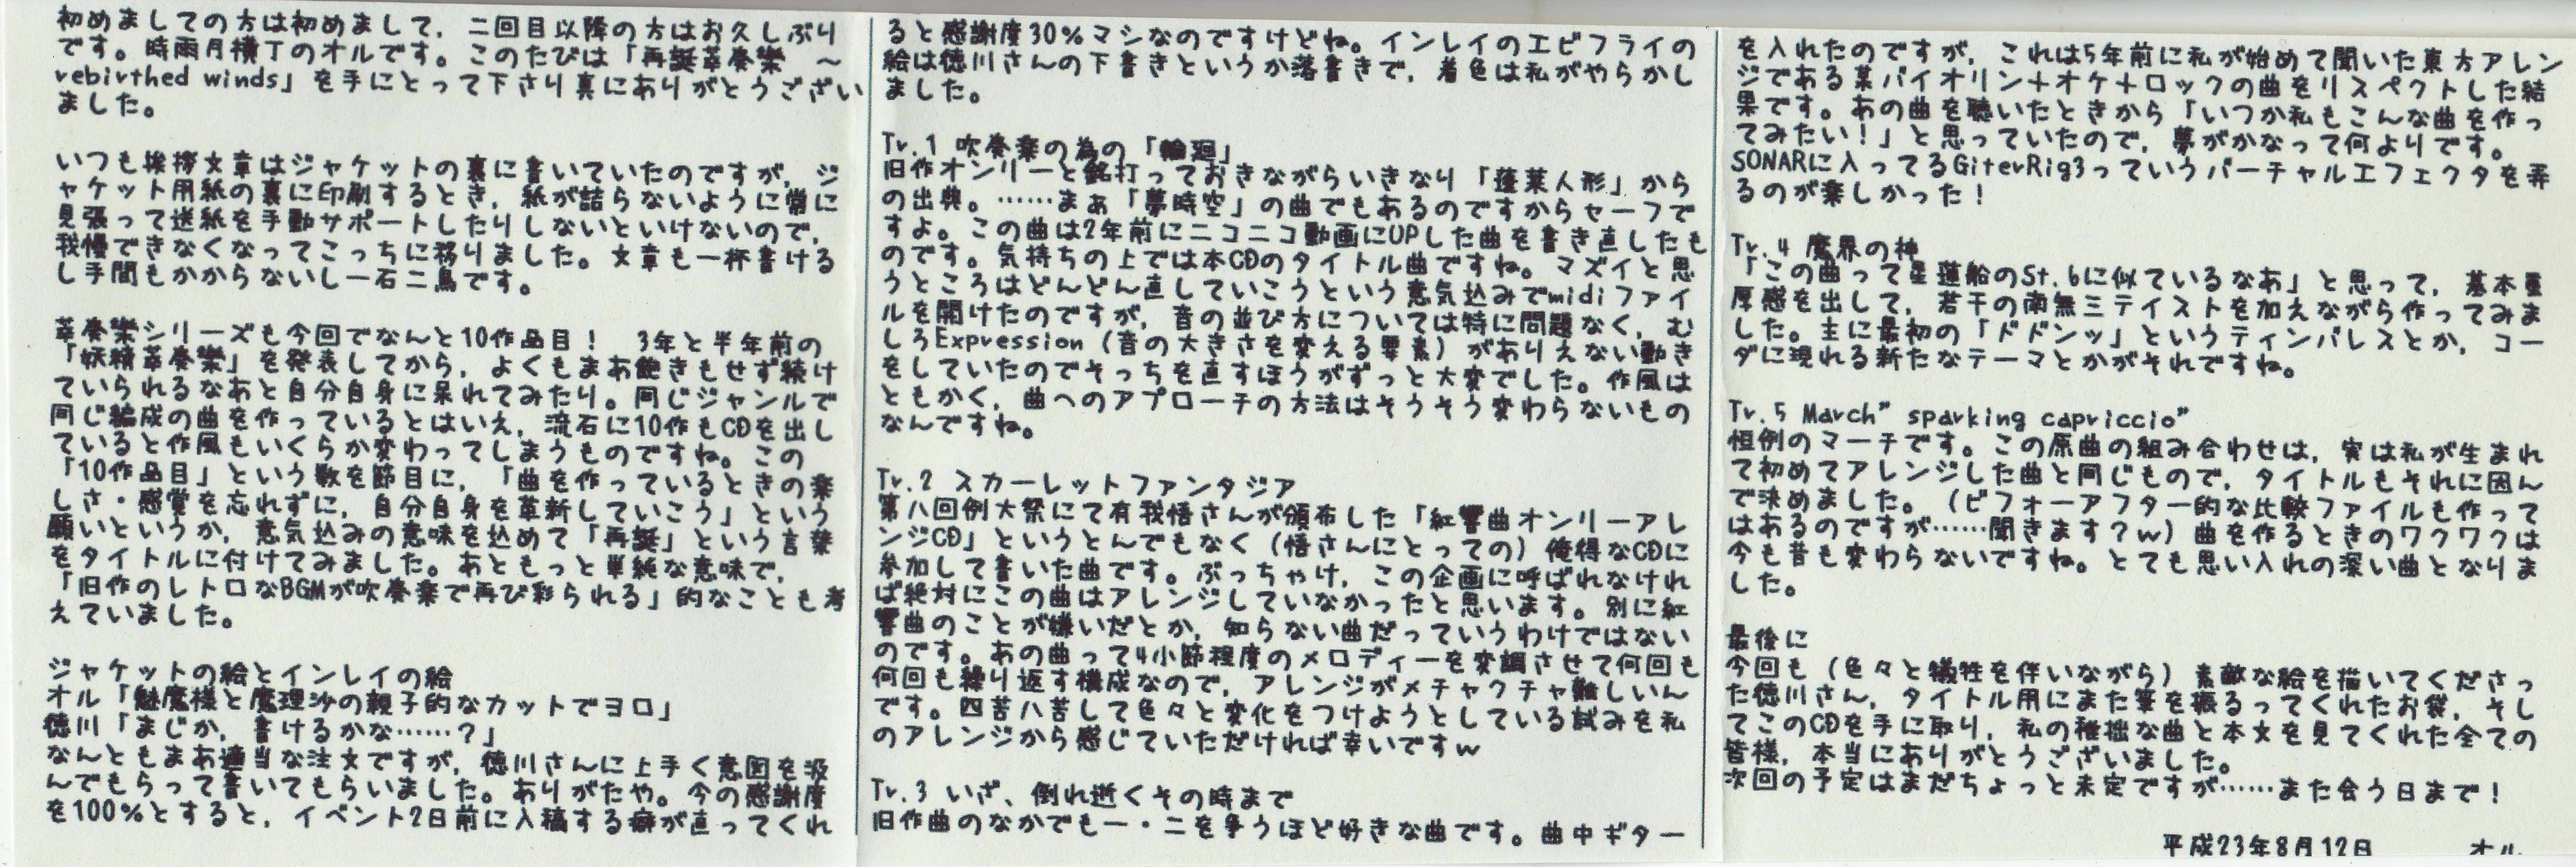 初めましての方は初めまして，二回目以降の方はお久しぶり
です。時雨月横丁のオルです。このたびは「再誕萃奏樂　～
rebirthed winds」を手にとって下さり真にありがとうござい
ました。
いつも挨拶文章はジャケットの裏に書いていたのですが，ジ
ャケット用紙の裏に印刷するとき，紙が詰らないように常に
見張って送紙を手動サポートしたりしないといけないので，
我慢できなくなってこっちに移りました。文章も一杯書ける
し手間もかからないし一石二鳥です。
萃奏樂シリーズも今回でなんと10作品目！　3年と半年前の
「妖精萃奏樂」を発表してから，よくもまあ飽きもせず続け
ていられるなあと自分自身に呆れてみたり。同じジャンルで
同じ編成の曲を作っているとはいえ，流石に10作もCDを出し
ていると作風もいくらか変わってしまうものですね。この
「10作品目」という数を節目に，「曲を作っているときの楽
しさ・感覚を忘れずに，自分自身を革新していこう」という
願いというか，意気込みの意味を込めて「再誕」という言葉
をタイトルに付けてみました。あともっと単純な意味で，
「旧作のレトロなBGMが吹奏楽で再び彩られる」的なことも考
えていました。
ジャケットの絵とインレイの絵
オル「魅魔様と魔理沙の親子的なカットでヨロ」
徳川「まじか，書けるかな……？」
なんともまあ適当な注文ですが，徳川さんに上手く意図を汲
んでもらって書いてもらいました。ありがたや。今の感謝度
を100%とすると，イベント2日前に入稿する癖が直ってくれ
ると感謝度30%マシなのですけどね。インレイのエビフライの
絵は徳川さんの下書きというか落書きで，着色は私がやらかし
ました。
Tr.1 吹奏楽の為の「輪廻」
旧作オンリーと銘打っておきながらいきなり「蓬莱人形」から
の出典。……まぁ「夢時空」の曲でもあるのですからセーフで
すよ。この曲は2年前にニコニコ動画にUPした曲を書き直したも
のです。気持ちの上では本CDのタイトル曲ですね。マズイと思
うところはどんどん直していこうという意気込みでmidiファイ
ルを開けたのですが，音の並び方については特に問題なく，む
しろExpression（音の大きさを変える要素）がありえない動き
をしていたのでそっちを直すほうがずっと大変でした。作風は
ともかく，曲へのアプローチの方法はそうそう変わらないもの
なんですね。
Tr.2 スカーレットファンタジア
第八回例大祭にて有我悟さんが頒布した「紅響曲オンリーアレ
ンジCD」というとんでもなく（悟さんにとっての）俺得なCDに
参加して書いた曲です。ぶっちゃけ，この企画に呼ばれなけれ
ば絶対にこの曲はアレンジしていなかったと思います。別に紅
響曲のことが嫌いだとか，知らない曲だっていうわけではない
のです。あの曲って4小節程度のメロディーを変調させて何回も
何回も繰り返す構成なので，アレンジがメチャクチャ難しいん
です。四苦八苦して色々と変化をつけようとしている試みを私
のアレンジから感じていただければ幸いですw
Tr.3 いざ、倒れ逝くその時まで
旧作曲のなかでも一・二を争うほど好きな曲です。曲中ギター
を入れたのですが，これは5年前に私が始めて聞いた東方アレン
ジである某バイオリン＋オケ＋ロックの曲をリスペクトした結
果です。あの曲を聴いたときから「いつか私もこんな曲を作っ
てみたい！」と思っていたので，夢がかなって何よりです。
SONARに入ってるGiterRig3っていうバーチャルエフェクタを弄
るのが楽しかった！
Tr.4 魔界の神
「この曲って星蓮船のSt.6に似ているなあ」と思って，基本重
厚感を出して，若干の南無三テイストを加えながら作ってみま
した。主に最初の「ドドンッ」というティンバレスとか，コー
ダに現れる新たなテーマとかがそれですね。
Tr.5 March" sparking capriccio"
恒例のマーチです。この原曲の組み合わせは，実は私が生まれ
て初めてアレンジした曲と同じもので，タイトルもそれに因ん
で決めました。（ビフォーアフター的な比較ファイルも作って
はあるのですが……聞きます？w）曲を作るときのワクワクは
今も昔も変わらないですね。とても思い入れの深い曲となりま
した。
最後に
今回も（色々と犠牲を伴いながら）素敵な絵を描いてくださっ
た徳川さん，タイトル用にまた筆を振るってくれたお袋，そし
てこのCDを手に取り，私の稚拙な曲と本文を見てくれた全ての
皆様，本当にありがとうございました。
次回の予定はまだちょっと未定ですが……また会う日まで！
平成23年8月12日　　オル